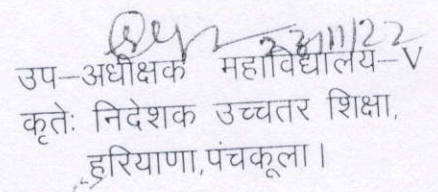 23/11/22
उप-अधीक्षक महाविद्यालय-V
कृतेः निदेशक उच्चतर शिक्षा,
हरियाणा,पंचकूला।